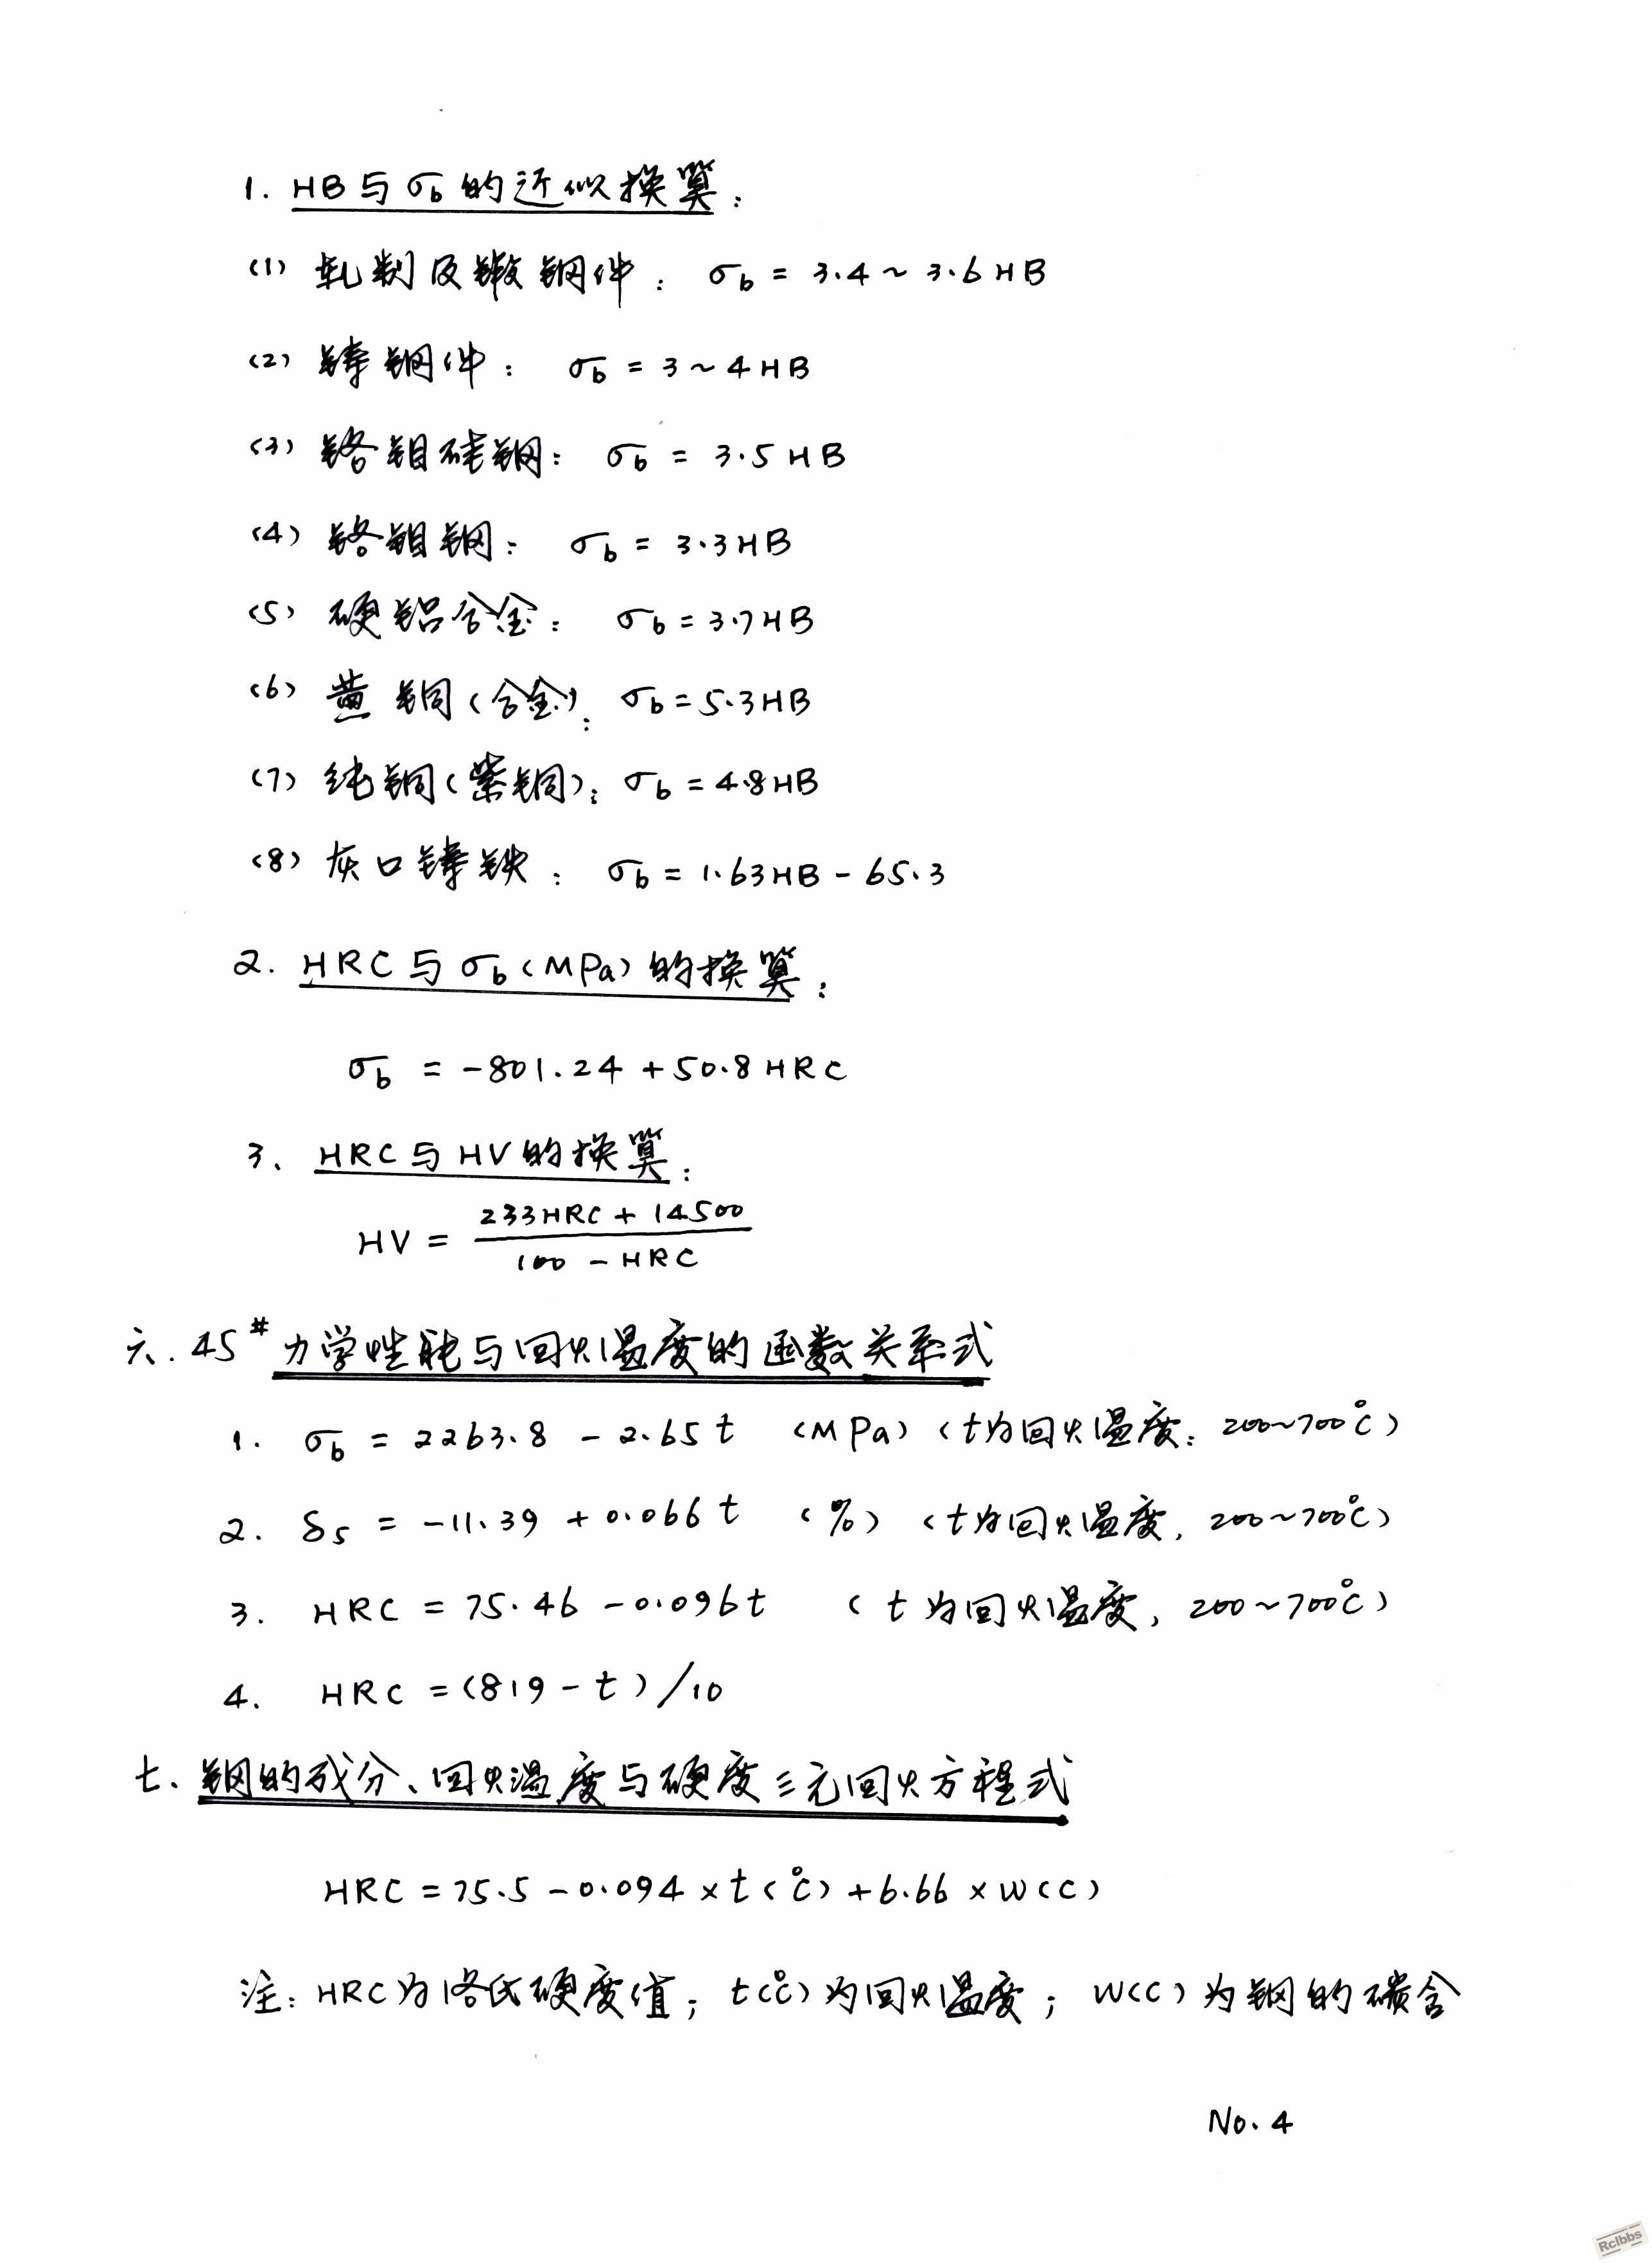 1. HB与σb的近似换算：
(1) 轧制及锻钢件：σb = 3.4～3.6HB
(2) 铸钢件：σb = 3～4HB
(3) 铬钼硅钢：σb = 3.5HB
(4) 铬钼钢：σb = 3.3HB
(5) 硬铝合金：σb = 3.7HB
(6) 黄铜(合金)：σb = 5.3HB
(7) 纯铜(紫铜)：σb = 4.8HB
(8) 灰口铸铁：σb = 1.63HB - 65.3
2. HRC与σb(MPa)的换算：
σb = -801.24 + 50.8HRC
3、HRC与HV的换算：
HV = (233HRC + 14500) / (100 - HRC)
六. 45#力学性能与回火温度的函数关系式
1. σb = 2263.8 - 2.65t (MPa) (t为回火温度：200～700℃)
2. δ5 = -11.39 + 0.066t (%) (t为回火温度，200～700℃)
3. HRC = 75.46 - 0.096t (t为回火温度，200～700℃)
4. HRC = (819 - t)/10
七、钢的成分、回火温度与硬度三元回火方程式
HRC = 75.5 - 0.094×t(℃) + 6.66×W(C)
注：HRC为洛氏硬度值；t(℃)为回火温度；W(C)为钢的碳含
No.4
Rclbbs